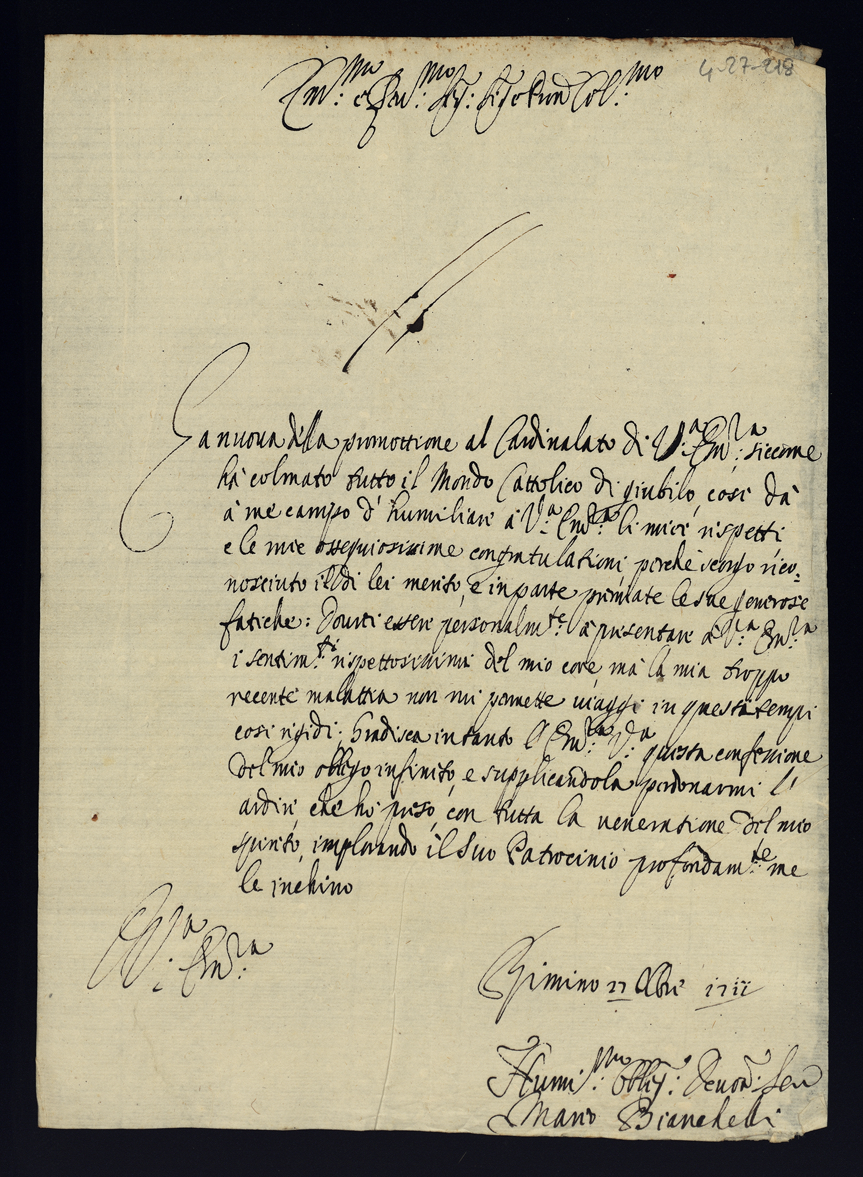 4-27-218
Em:mo e Rmo: Sig: Sig e Pron Col:mo
La nuova della promottione al Cardinalato di V:a Em:za, siccome
hà colmato tutto il Mondo Cattolico di giubilo, così dà
à me campo d' humiliare à V:a Em:za li miei rispetti
e le mie ossequiosissime congratulationi perche scorgo rico=
nosciuto il di lei merito, e in parte premiate le sue generose
fatiche: Dovrei essere personalm:te à presentare à V:a Em:za
i sentim:ti rispettosissimi del mio core, mà la mia troppo
recente malattia non mi permette viaggi in questi tempi
così rigidi; Gradisca intanto l'Em:za V:a questa confessione
del mio obligo infinito, e supplicandola perdonarmi l'
ardire che hò preso, con tutta la veneratione del mio
spirito, implorando il suo Patrocinio profondam:te me
le inchino
Di V:a Em:za
Rimino 27 Xbre
Humi:mo obblig: Devot: Ser
Mario Bianchelli